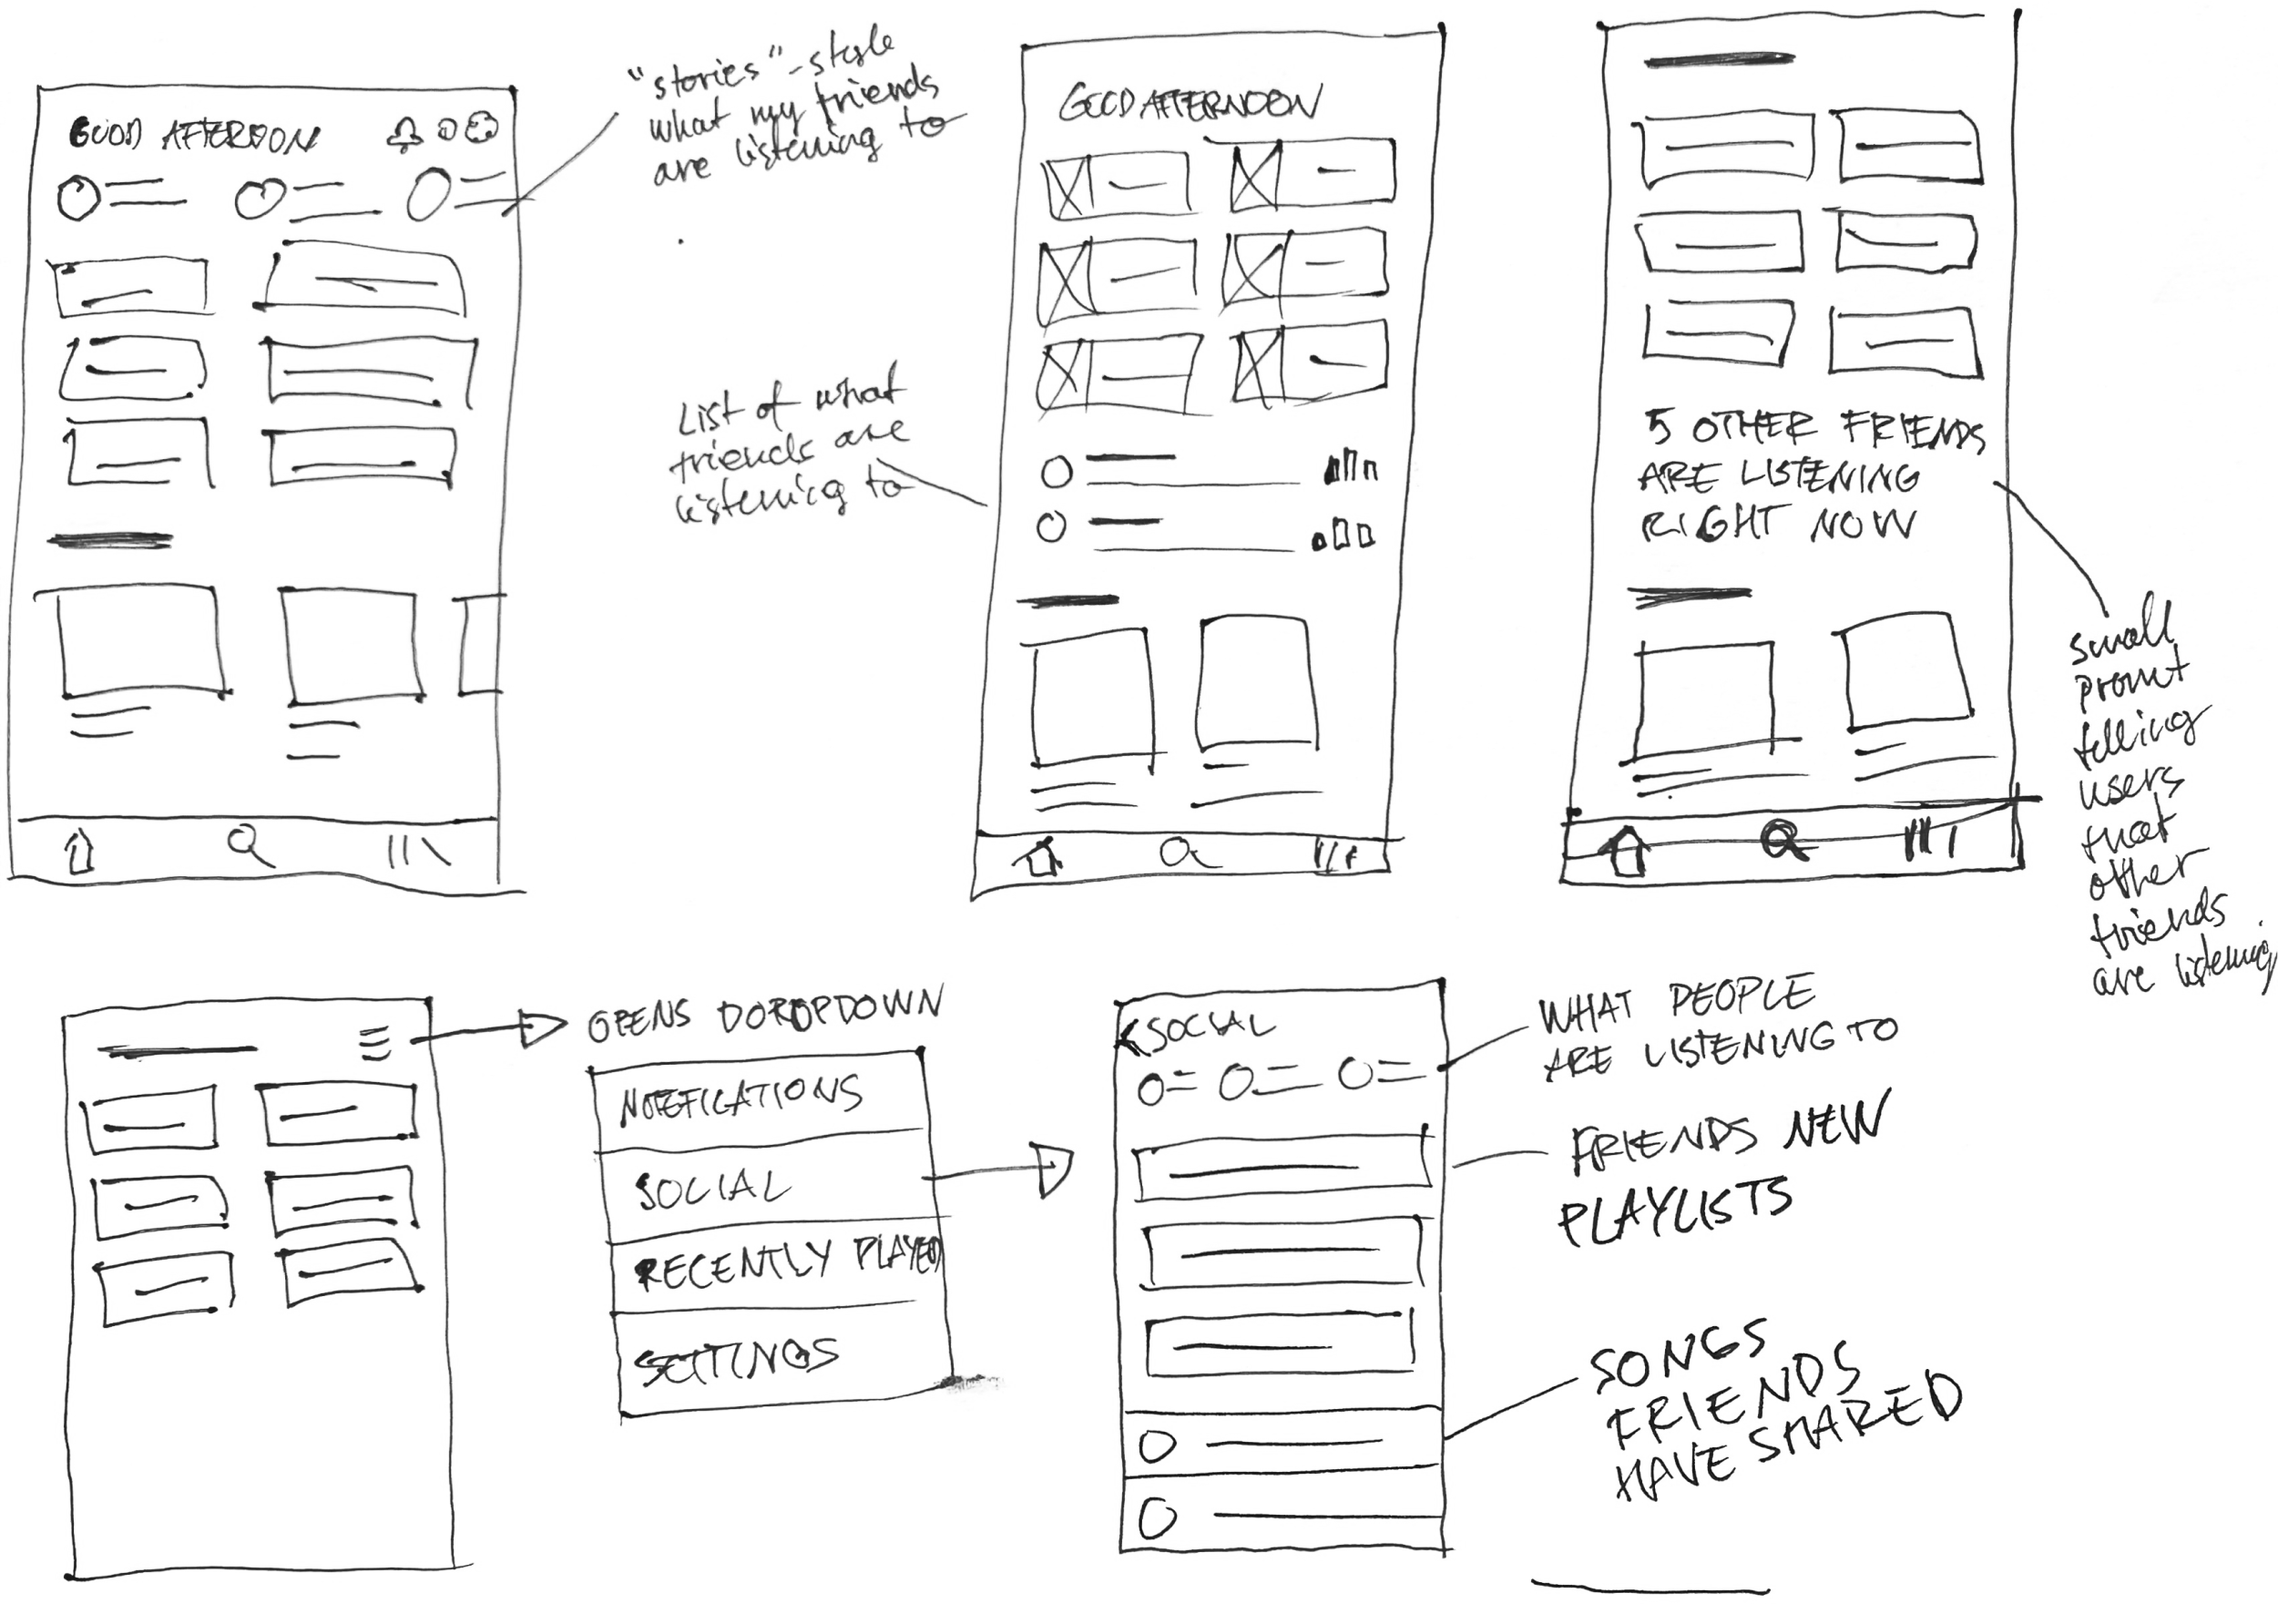 GOOD AFTEROON
"stories" - style
what my friends
are listening to
GOOD AFTERNOON
List of what
friends are
listening to
5 OTHER FRIENDS
ARE LISTENING
RIGHT NOW
small
promt
telling
users
that
other
friends
are listening
OPENS DOROPDOWN
NOTEFICATIONS
SOCIAL
RECENTLY PLAYED
SETTINGS
<SOCIAL
WHAT PEOPLE
ARE LISTENING TO
FRIENDS NEW
PLAYLISTS
SONGS
FRIENDS
HAVE SHARED